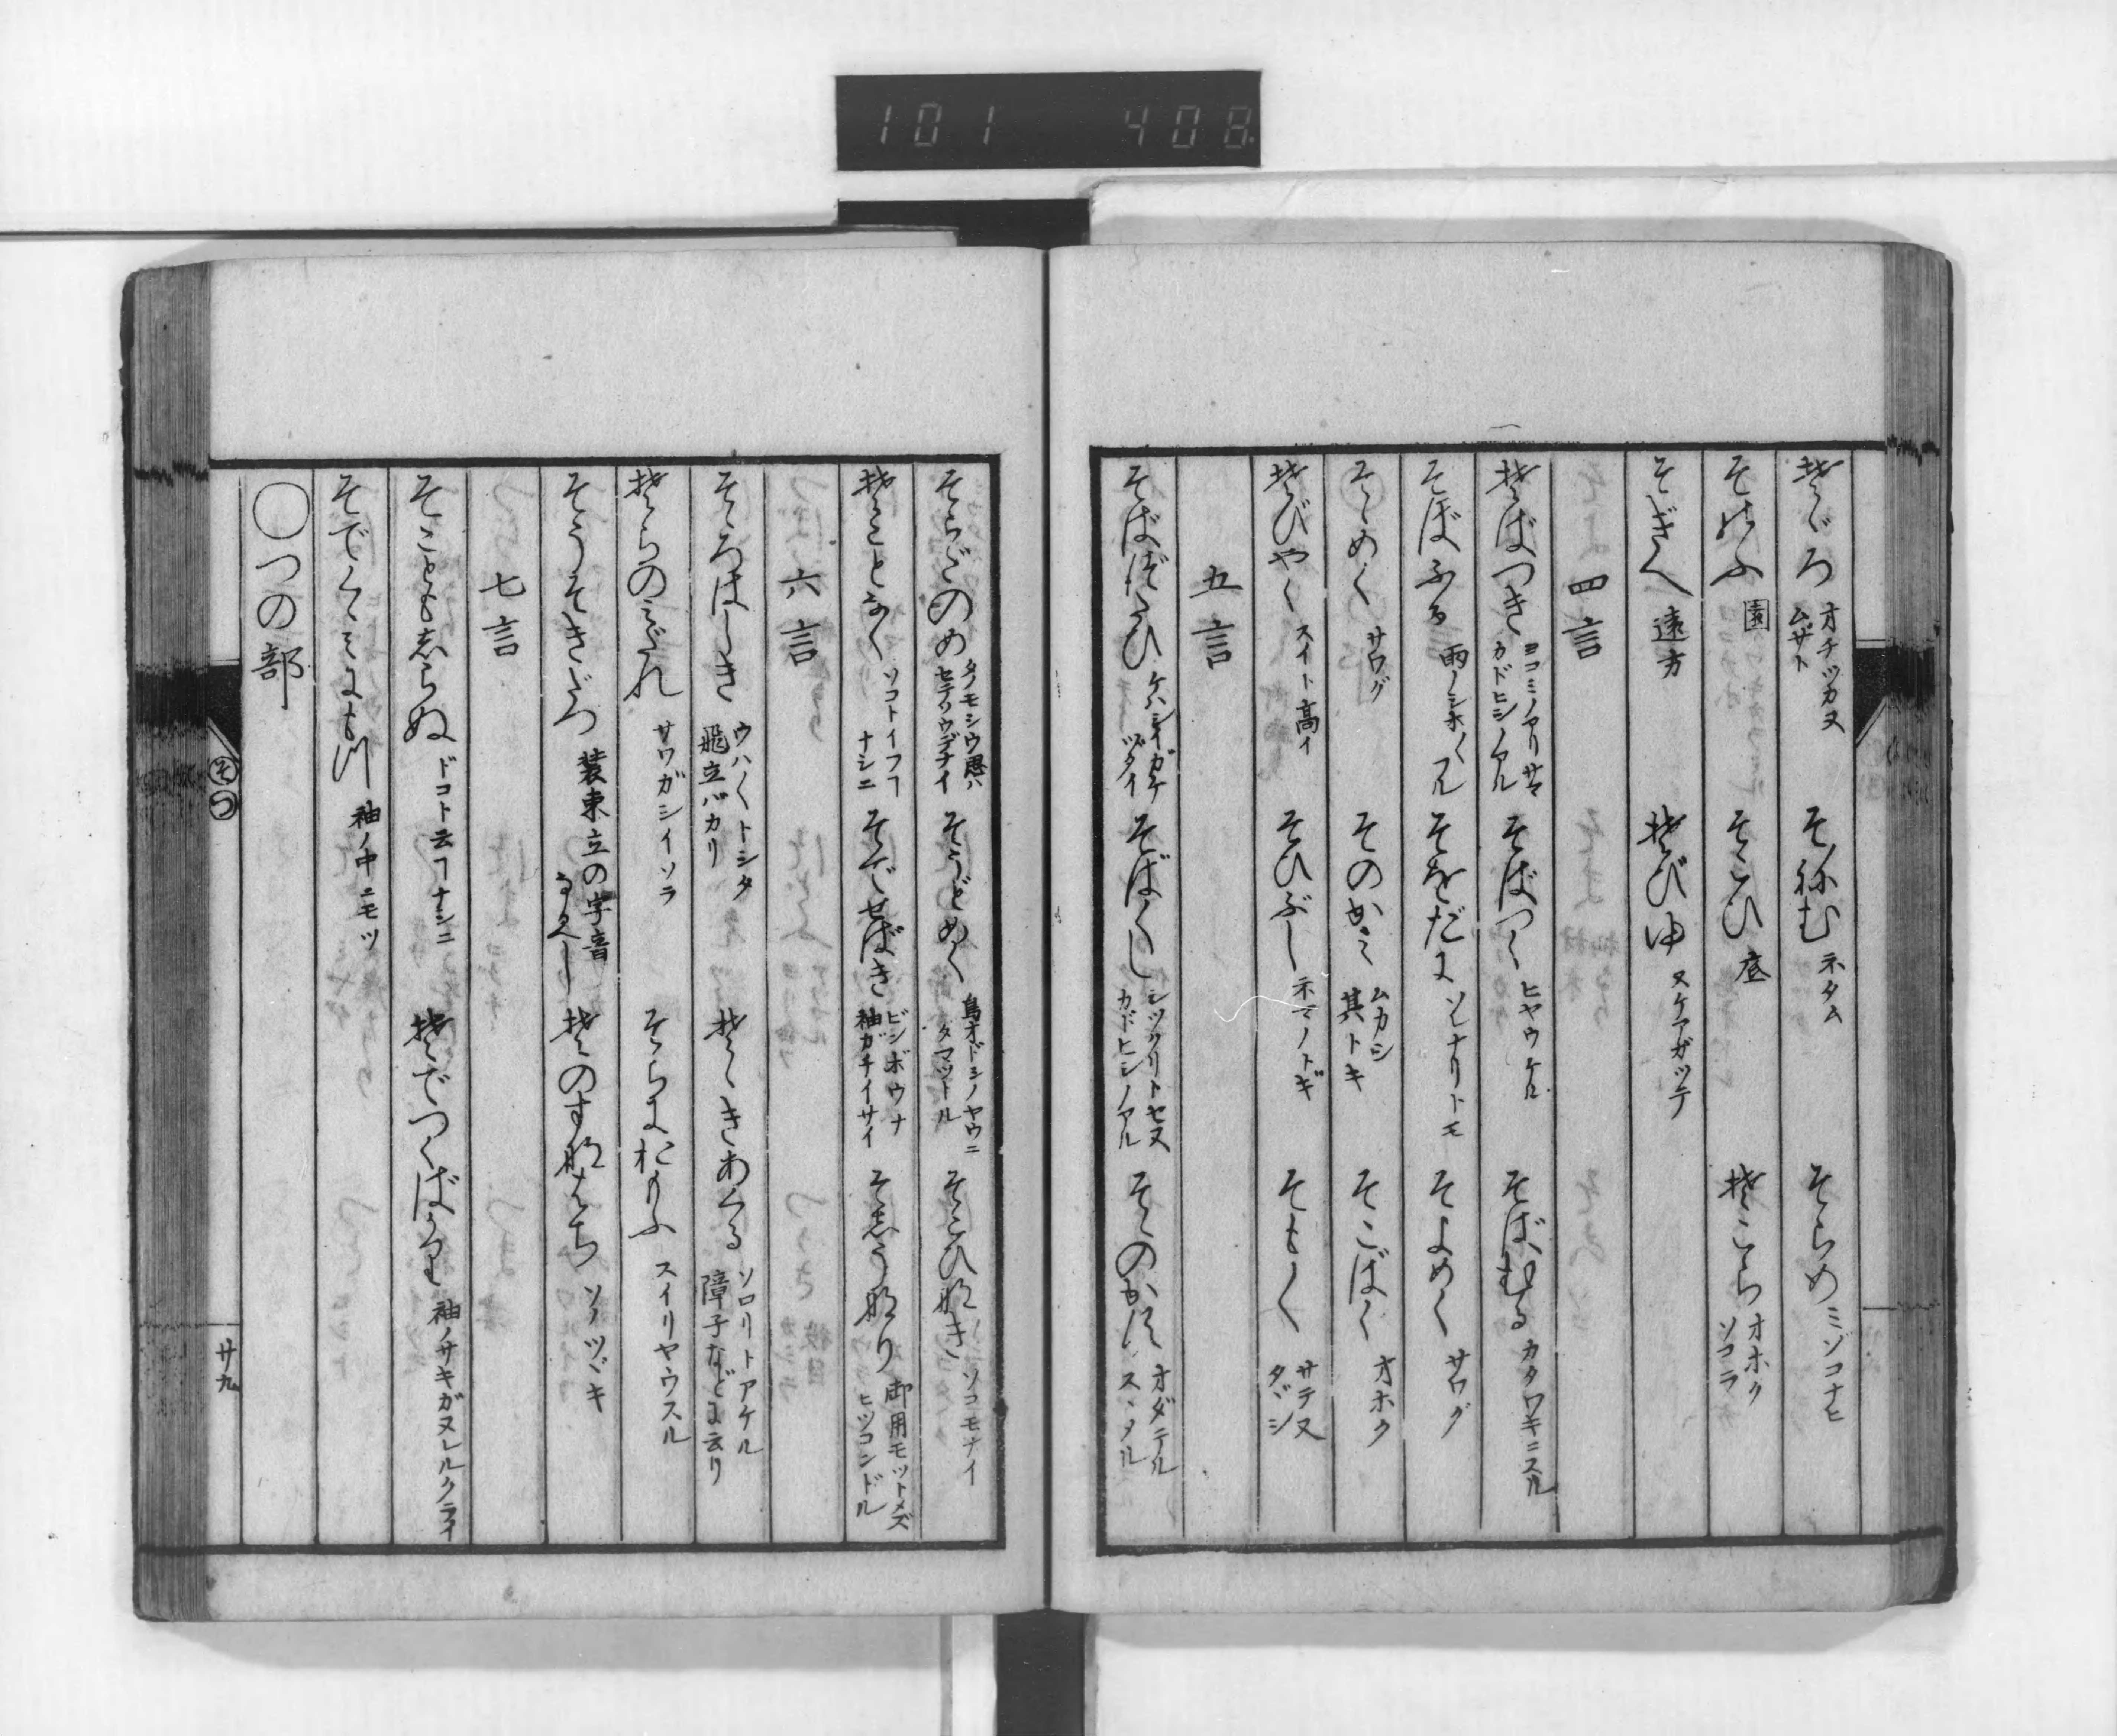 101 408
そゞろ オチツカヌ ムザト そねむ ネタム そらめ ミゾコナヒ
そのふ 園 そこひ 底 そこら オホク ソコラ
そぎへ 遠方 そびゆ ヌケアガツテ
四言
そばつき ヨコミノアリサマ カドヒシノアル そばつく ヒヤウケル そばむる カタワキニスル
そぼふる 雨ノシホ〱フル そをだに ソレナリトモ そよめく サワグ
そゝめく サワグ そのかみ ムカシ 其トキ そこばく オホク
そびやく スイト高イ そひぶし ネマノトギ そも〱 サテ又 タヾシ
五言
そばづたひ ケハシイガケヅタイ そば〱し シツクリトセヌ カドヒシノアル そゝのかす オダテル スヽメル
そらだのめ タノモシウ思ハセテソウデナイ そうどめく 鳥オドシノヤウニ タマツトル そこひなき ソコモナイ
そことなく ソコトイフヿナシニ そでせばき ビンボウナ 袖ガチイサイ そしうなり 御用モツトメズ ヒツコンドル
六言
そゞろはしき ウハ〱トシタ 飛立バカリ そゝきあくる ソロリトアケル 障子などに云り
そらのみだれ サワガシイソラ そらにおもふ スイリヤウスル
そうそきだつ 装束立の字音なるべし そのすなはち ソノツヾキ
七言
そこともしらぬ ドコト云ヿナシニ そでつくばかり 袖ノサキガヌレルクライ
そでぐくみにもつ 袖ノ中ニモツ
○つの部
そ つ
廿九